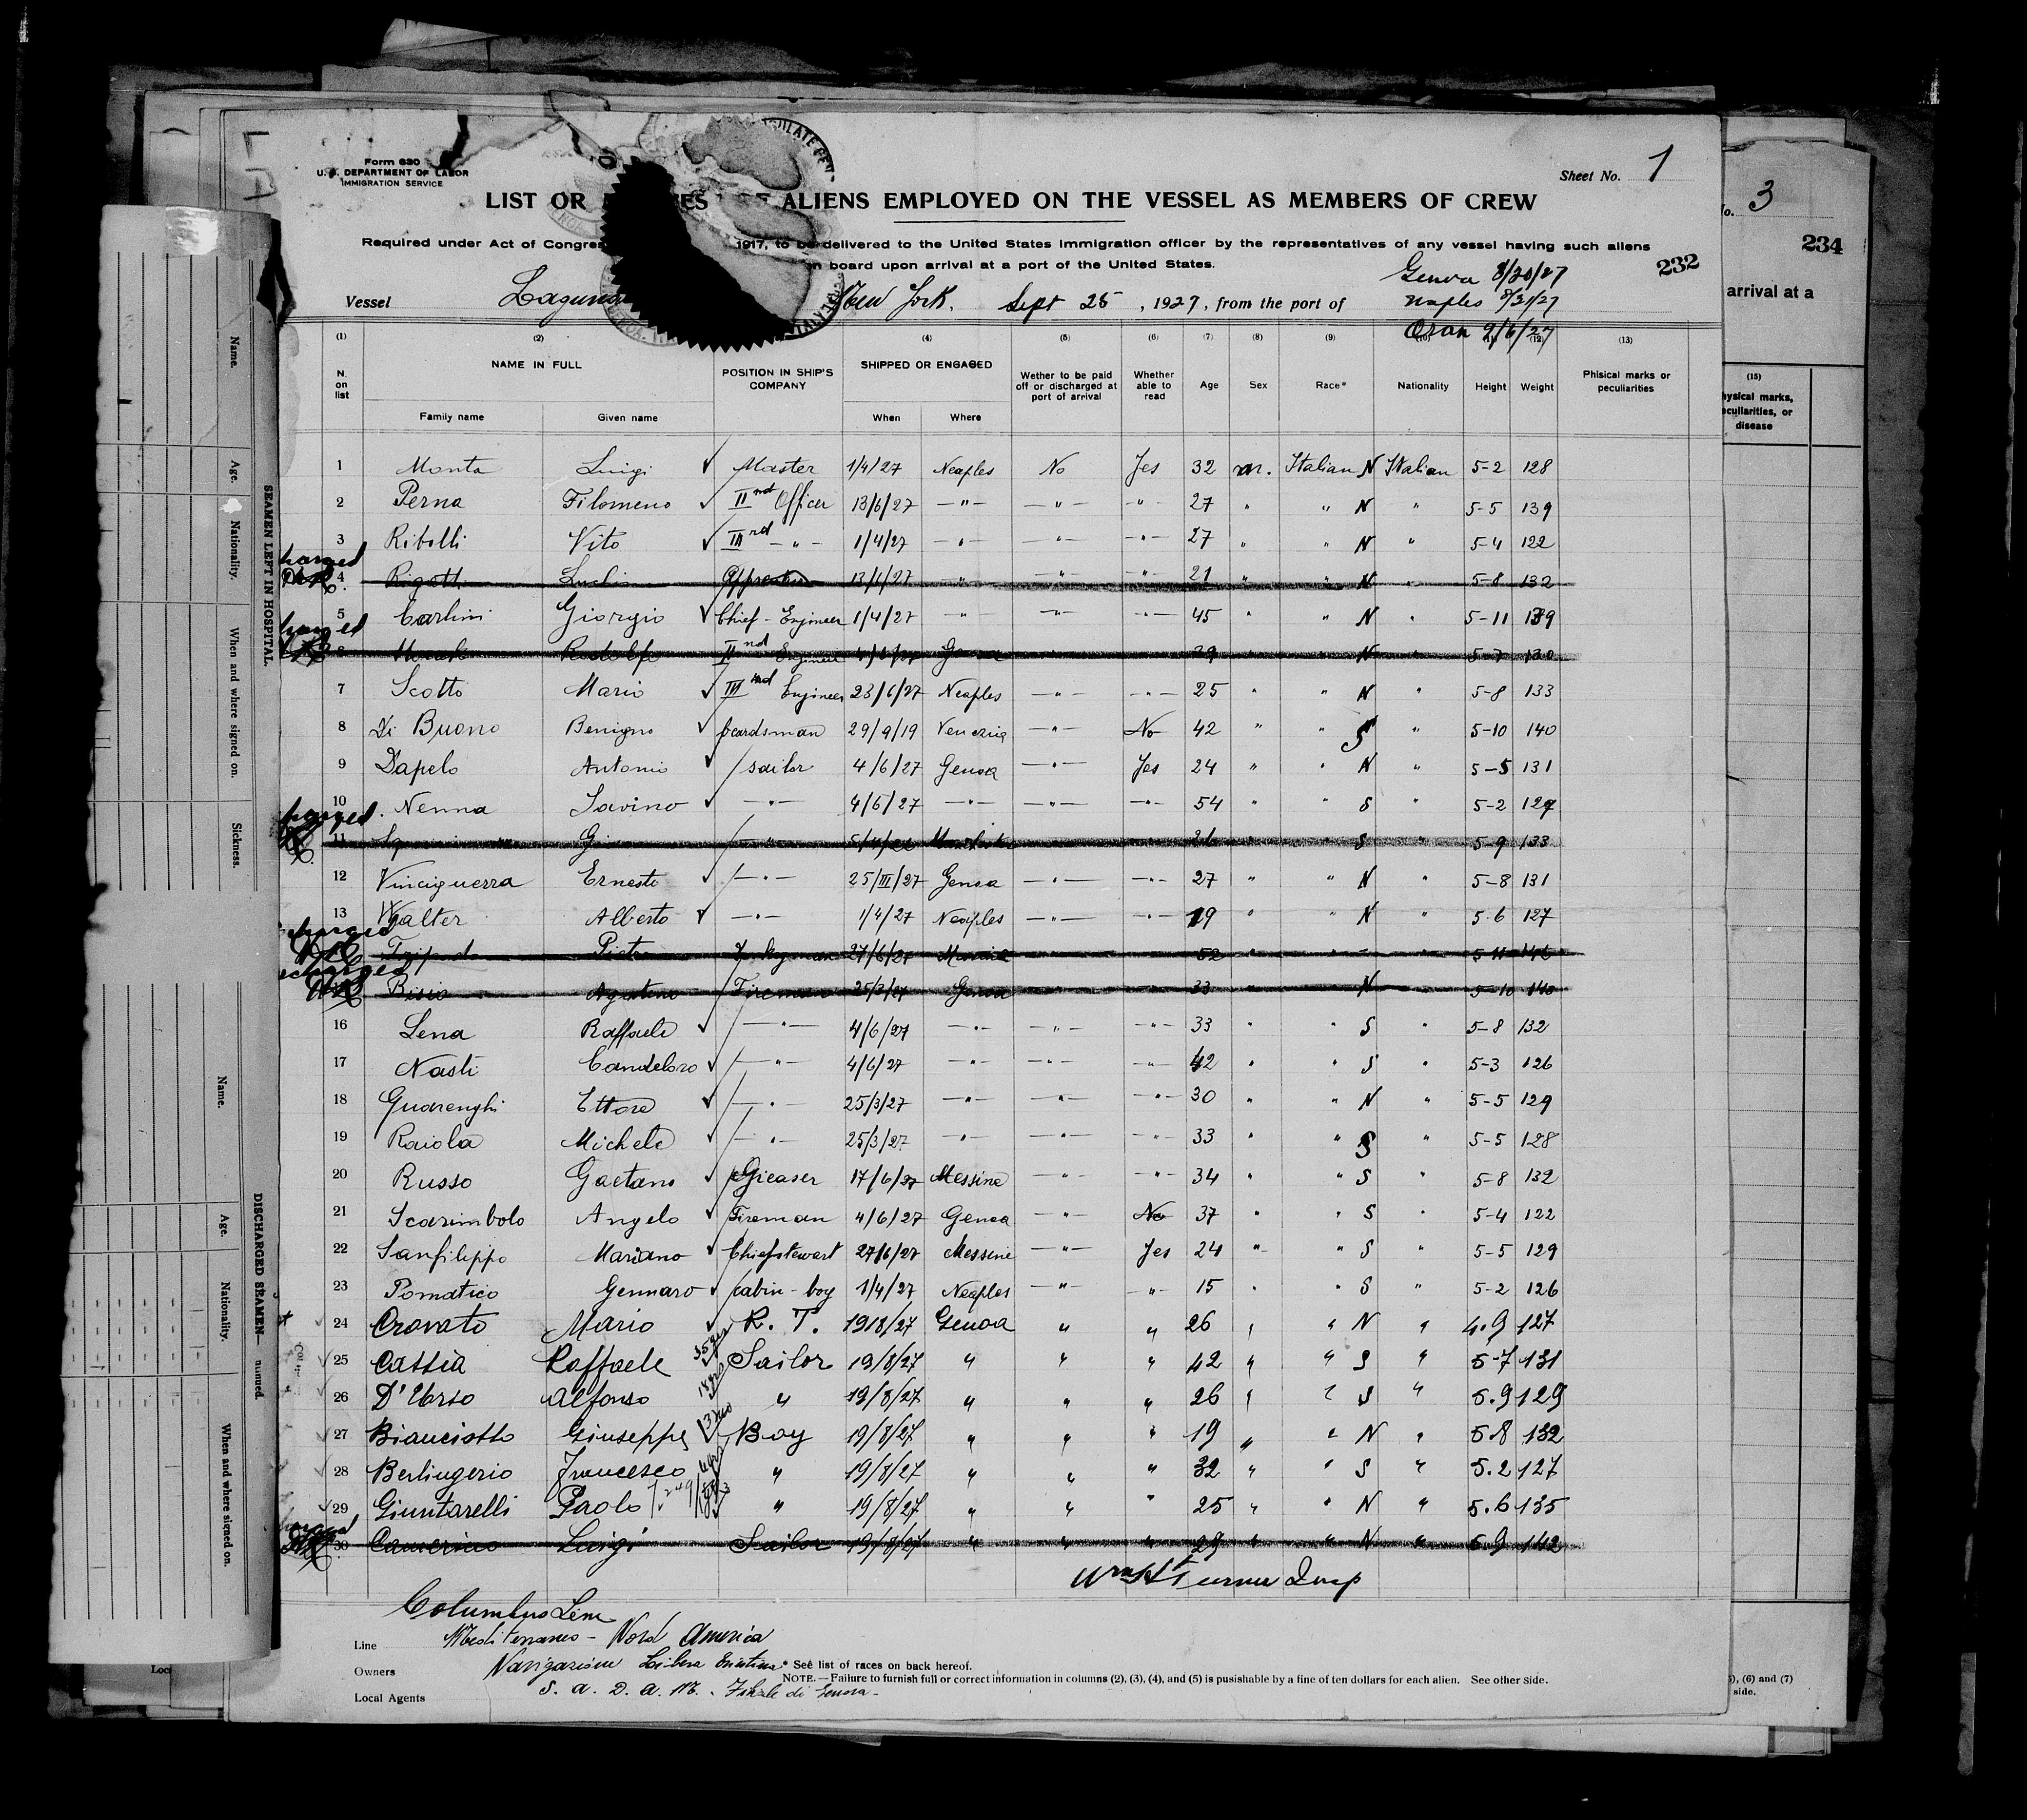 Form 630
U.S. DEPARTMENT OF LABOR
IMMIGRATION SERVICE
Sheet No. 1
LIST OR ALIENS EMPLOYED ON THE VESSEL AS MEMBERS OF CREW
Required under Act of Congres 1917, to be delivered to the United States immigration officer by the representatives of any vessel having such aliens
on board upon arrival at a port of the United States.
232
Genova 8/20/27
Vessel Laguna New York. Sept 25, 1927, from the port of Naples 8/21/27
Oran 9/6/27
(1) (2) (4) (5) (6) (7) (8) (9) (10) (11) (12) (13)
N. on list NAME IN FULL POSITION IN SHIP'S COMPANY SHIPPED OR ENGAGED Wether to be paid off or discharged at port of arrival Whether able to read Age Sex Race* Nationality Height Weight Phisical marks or peculiarities
Family name Given name When Where
1 Monta Luigi Master 1/4/27 Neaples No Yes 32 m. Italian N Italian 5-2 128
2 Perna Filomeno IInd Officer 13/6/27 -"- -"- -"- 27 " " N " 5-5 139
3 Ribolli Vito IIIrd -"- 1/4/27 -"- -"- -"- 27 " " N " 5-4 122
4 13/6/27 -"- -"- -"- 21 " " N " 5-8 132
5 Carlini Giorgio Chief-Engineer 1/4/27 -"- -"- -"- 45 " " N " 5-11 139
6 Rodolfo IInd Engineer Genoa 29 N 5-7 130
7 Scotto Mario IIIrd Engineer 23/6/27 Neaples -"- -"- 25 " " N " 5-8 133
8 Di Buono Benigno 29/9/19 Venezia -"- No 42 " " S " 5-10 140
9 Dapelo Antonio sailor 4/6/27 Genoa -"- Yes 24 " " N " 5-5 131
10 Nenna Savino -"- 4/6/27 -"- -"- -"- 54 " " S " 5-2 127
11 26 " " S " 5-9 133
12 Vinciguerra Ernesto -"- 25/III/27 Genoa -"- -"- 27 " " N " 5-8 131
13 Walter Alberto -"- 1/4/27 Neaples -"- -"- 19 " " N " 5.6 127
27/6/27 52
Bisio Agostino Fireman 25/3/27 Genoa 33 N 5-10 140
16 Lena Raffaele -"- 4/6/27 -"- -"- -"- 33 " " S " 5-8 132
17 Nasti Candeloro -"- 4/6/27 -"- -"- -"- 42 " " S " 5-3 126
18 Guarenghi Ettore -"- 25/3/27 -"- -"- -"- 30 " " N " 5-5 129
19 Raiola Michele -"- 25/3/27 -"- -"- -"- 33 " " S " 5-5 128
20 Russo Gaetano Greaser 17/6/27 Messine -"- -"- 34 " " S " 5-8 132
21 Scarimbolo Angelo Fireman 4/6/27 Genoa -"- No 37 " " S " 5-4 122
22 Sanfilippo Mariano Chiefstewart 27/6/27 Messine -"- Yes 24 " " S " 5-5 129
23 Pomatico Gennaro cabin-boy 1/4/27 Neaples -"- -"- 15 " " S " 5-2 126
24 Crovato Mario R. T. 1918/27 Genoa " " 26 " " N " 4.9 127
25 Cassia Raffaele Sailor 19/8/27 " " " 42 " " S " 5-7 131
26 D'Urso Alfonso " 19/8/27 " " " 26 " " S " 5.9 129
27 Bianciotto Giuseppe Boy 19/8/27 " " " 19 " " N " 5.8 132
28 Berlingerio Francesco " 19/8/27 " " " 32 " " S " 5.2 127
29 Giuntarelli Paolo " 19/8/27 " " " 25 " " N " 5.6 135
30 Camerino Luigi Sailor 19/8/27 " " " 29 " " N " 5.9 142
Columbus Line
Line Mediterraneo - Nord America
Owners Navigazione Libera Triestina * See list of races on back hereof.
NOTE.—Failure to furnish full or correct information in columns (2), (3), (4), and (5) is pusishable by a fine of ten dollars for each alien. See other Side.
Local Agents S. A. D. A. M. - Filiale di Genova -
No. 3
234
arrival at a
(15)
hysical marks,
eculiarities, or
disease
), (6) and (7)
side.
SEAMEN LEFT IN HOSPITAL.
Name. Age. Nationality. When and where signed on. Sickness.
DISCHARGED SEAMEN—
Name. Age. Nationality. When and where signed on.